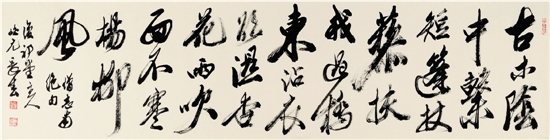 古木陰
中繫
短篷杖
藜扶
我過橋
東沾衣
欲濕杏
花雨吹
面不寒
楊柳
風
僧志南
絕句